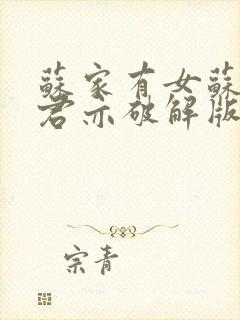 蘇家有女蘇
君亦破解版
宗青